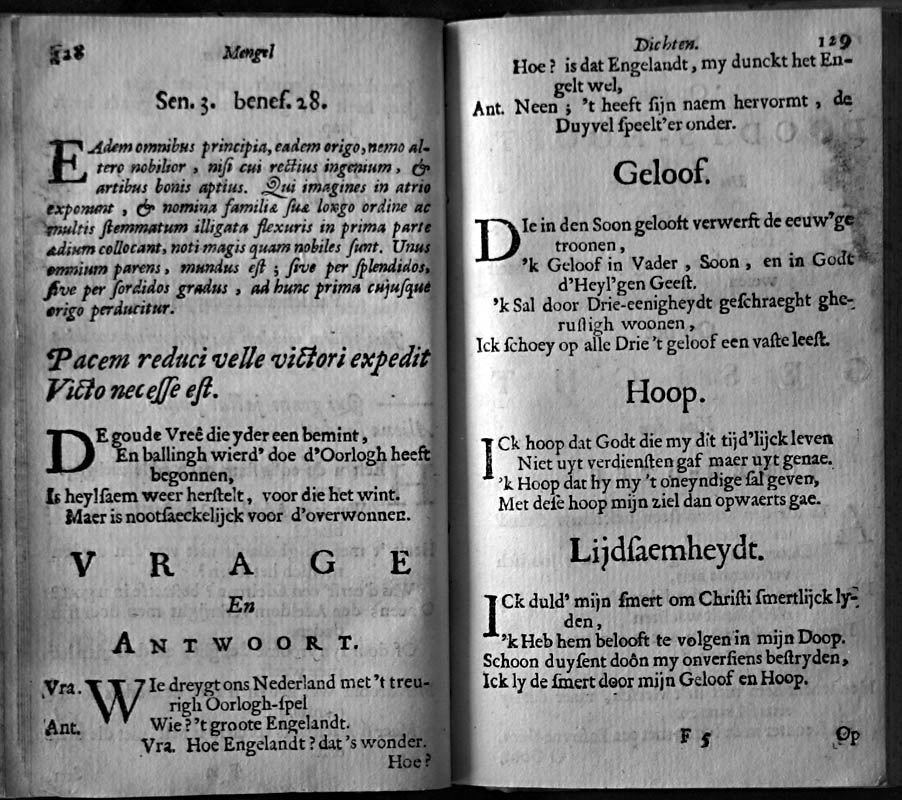 128 Mengel
Sen. 3. benef. 28.
EAdem omnibus principia, eadem origo, nemo al-
tero nobilior, nisi cui rectius ingenium, &
artibus bonis aptius. Qui imagines in atrio
exponunt, & nomina familiæ suæ longo ordine ac
multis stemmatum illigata flexuris in prima parte
ædium collocant, noti magis quam nobiles sunt. Unus
omnium parens, mundus est; sive per splendidos,
sive per sordidos gradus, ad hunc prima cujusque
origo perducitur.
Pacem reduci velle victori expedit
Victo necesse est.
DE goude Vreê die yder een bemint,
En ballingh wierd' doe d'Oorlogh heeft
begonnen,
Is heylsaem weer herstelt, voor die het wint.
Maer is nootsaeckelijck voor d'overwonnen.
VRAGE
En
ANTWOORT.
Vra. WIe dreygt ons Nederland met 't treu-
righ Oorlogh-spel
Ant. Wie? 't groote Engelandt.
Vra. Hoe Engelandt? dat's wonder.
Hoe?
Dichten. 129
Hoe? is dat Engelandt, my dunckt het En-
gelt wel,
Ant. Neen; 't heeft sijn naem hervormt, de
Duyvel speelt'er onder.
Geloof.
DIe in den Soon gelooft verwerft de eeuw'ge
troonen,
'k Geloof in Vader, Soon, en in Godt
d'Heyl'gen Geest.
'k Sal door Drie-eenigheydt geschraeght ghe-
rustigh woonen,
Ick schoey op alle Drie 't geloof een vaste leest.
Hoop.
ICk hoop dat Godt die my dit tijd'lijck leven
Niet uyt verdiensten gaf maer uyt genae.
'k Hoop dat hy my 't oneyndige sal geven,
Met dese hoop mijn ziel dan opwaerts gae.
Lijdsaemheydt.
ICk duld' mijn smert om Christi smertlijck ly-
den,
'k Heb hem belooft te volgen in mijn Doop.
Schoon duysent doôn my onversiens bestryden,
Ick ly de smert door mijn Geloof en Hoop.
F 5 Op